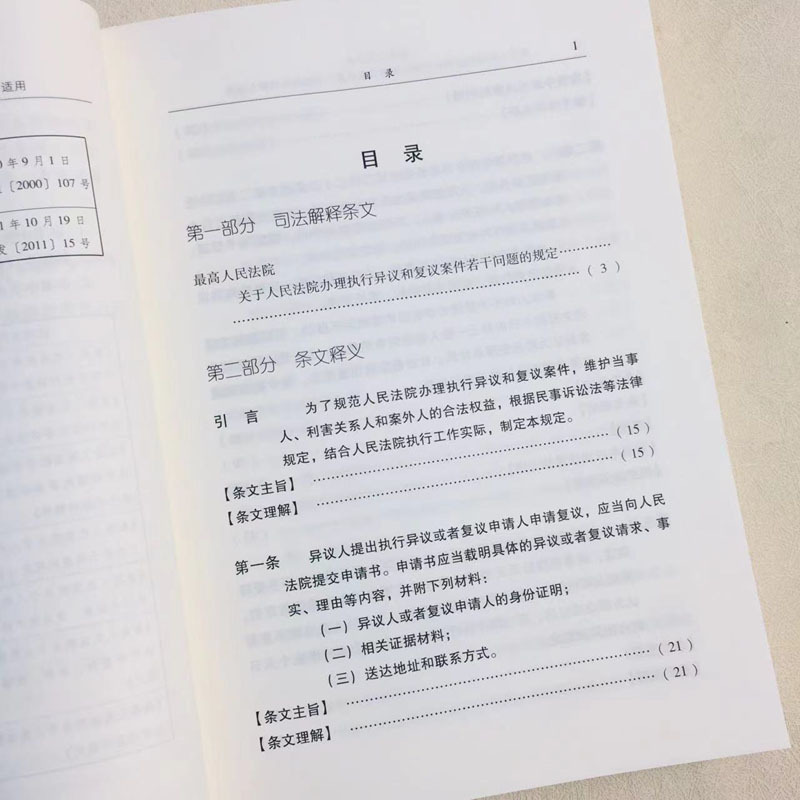 适用
年9月1日
〔2000〕107号
1年10月19日
发〔2011〕15号
目 录
1
目 录
第一部分 司法解释条文
最高人民法院
关于人民法院办理执行异议和复议案件若干问题的规定…………
……………………………………………………………（3）
第二部分 条文释义
引 言 为了规范人民法院办理执行异议和复议案件，维护当事
人、利害关系人和案外人的合法权益，根据民事诉讼法等法律
规定，结合人民法院执行工作实际，制定本规定。
【条文主旨】……………………………………………………（15）
【条文理解】……………………………………………………（15）
第一条 异议人提出执行异议或者复议申请人申请复议，应当向人民
法院提交申请书。申请书应当载明具体的异议或者复议请求、事
实、理由等内容，并附下列材料：
（一）异议人或者复议申请人的身份证明；
（二）相关证据材料；
（三）送达地址和联系方式。
【条文主旨】……………………………………………………（21）
【条文理解】……………………………………………………（21）